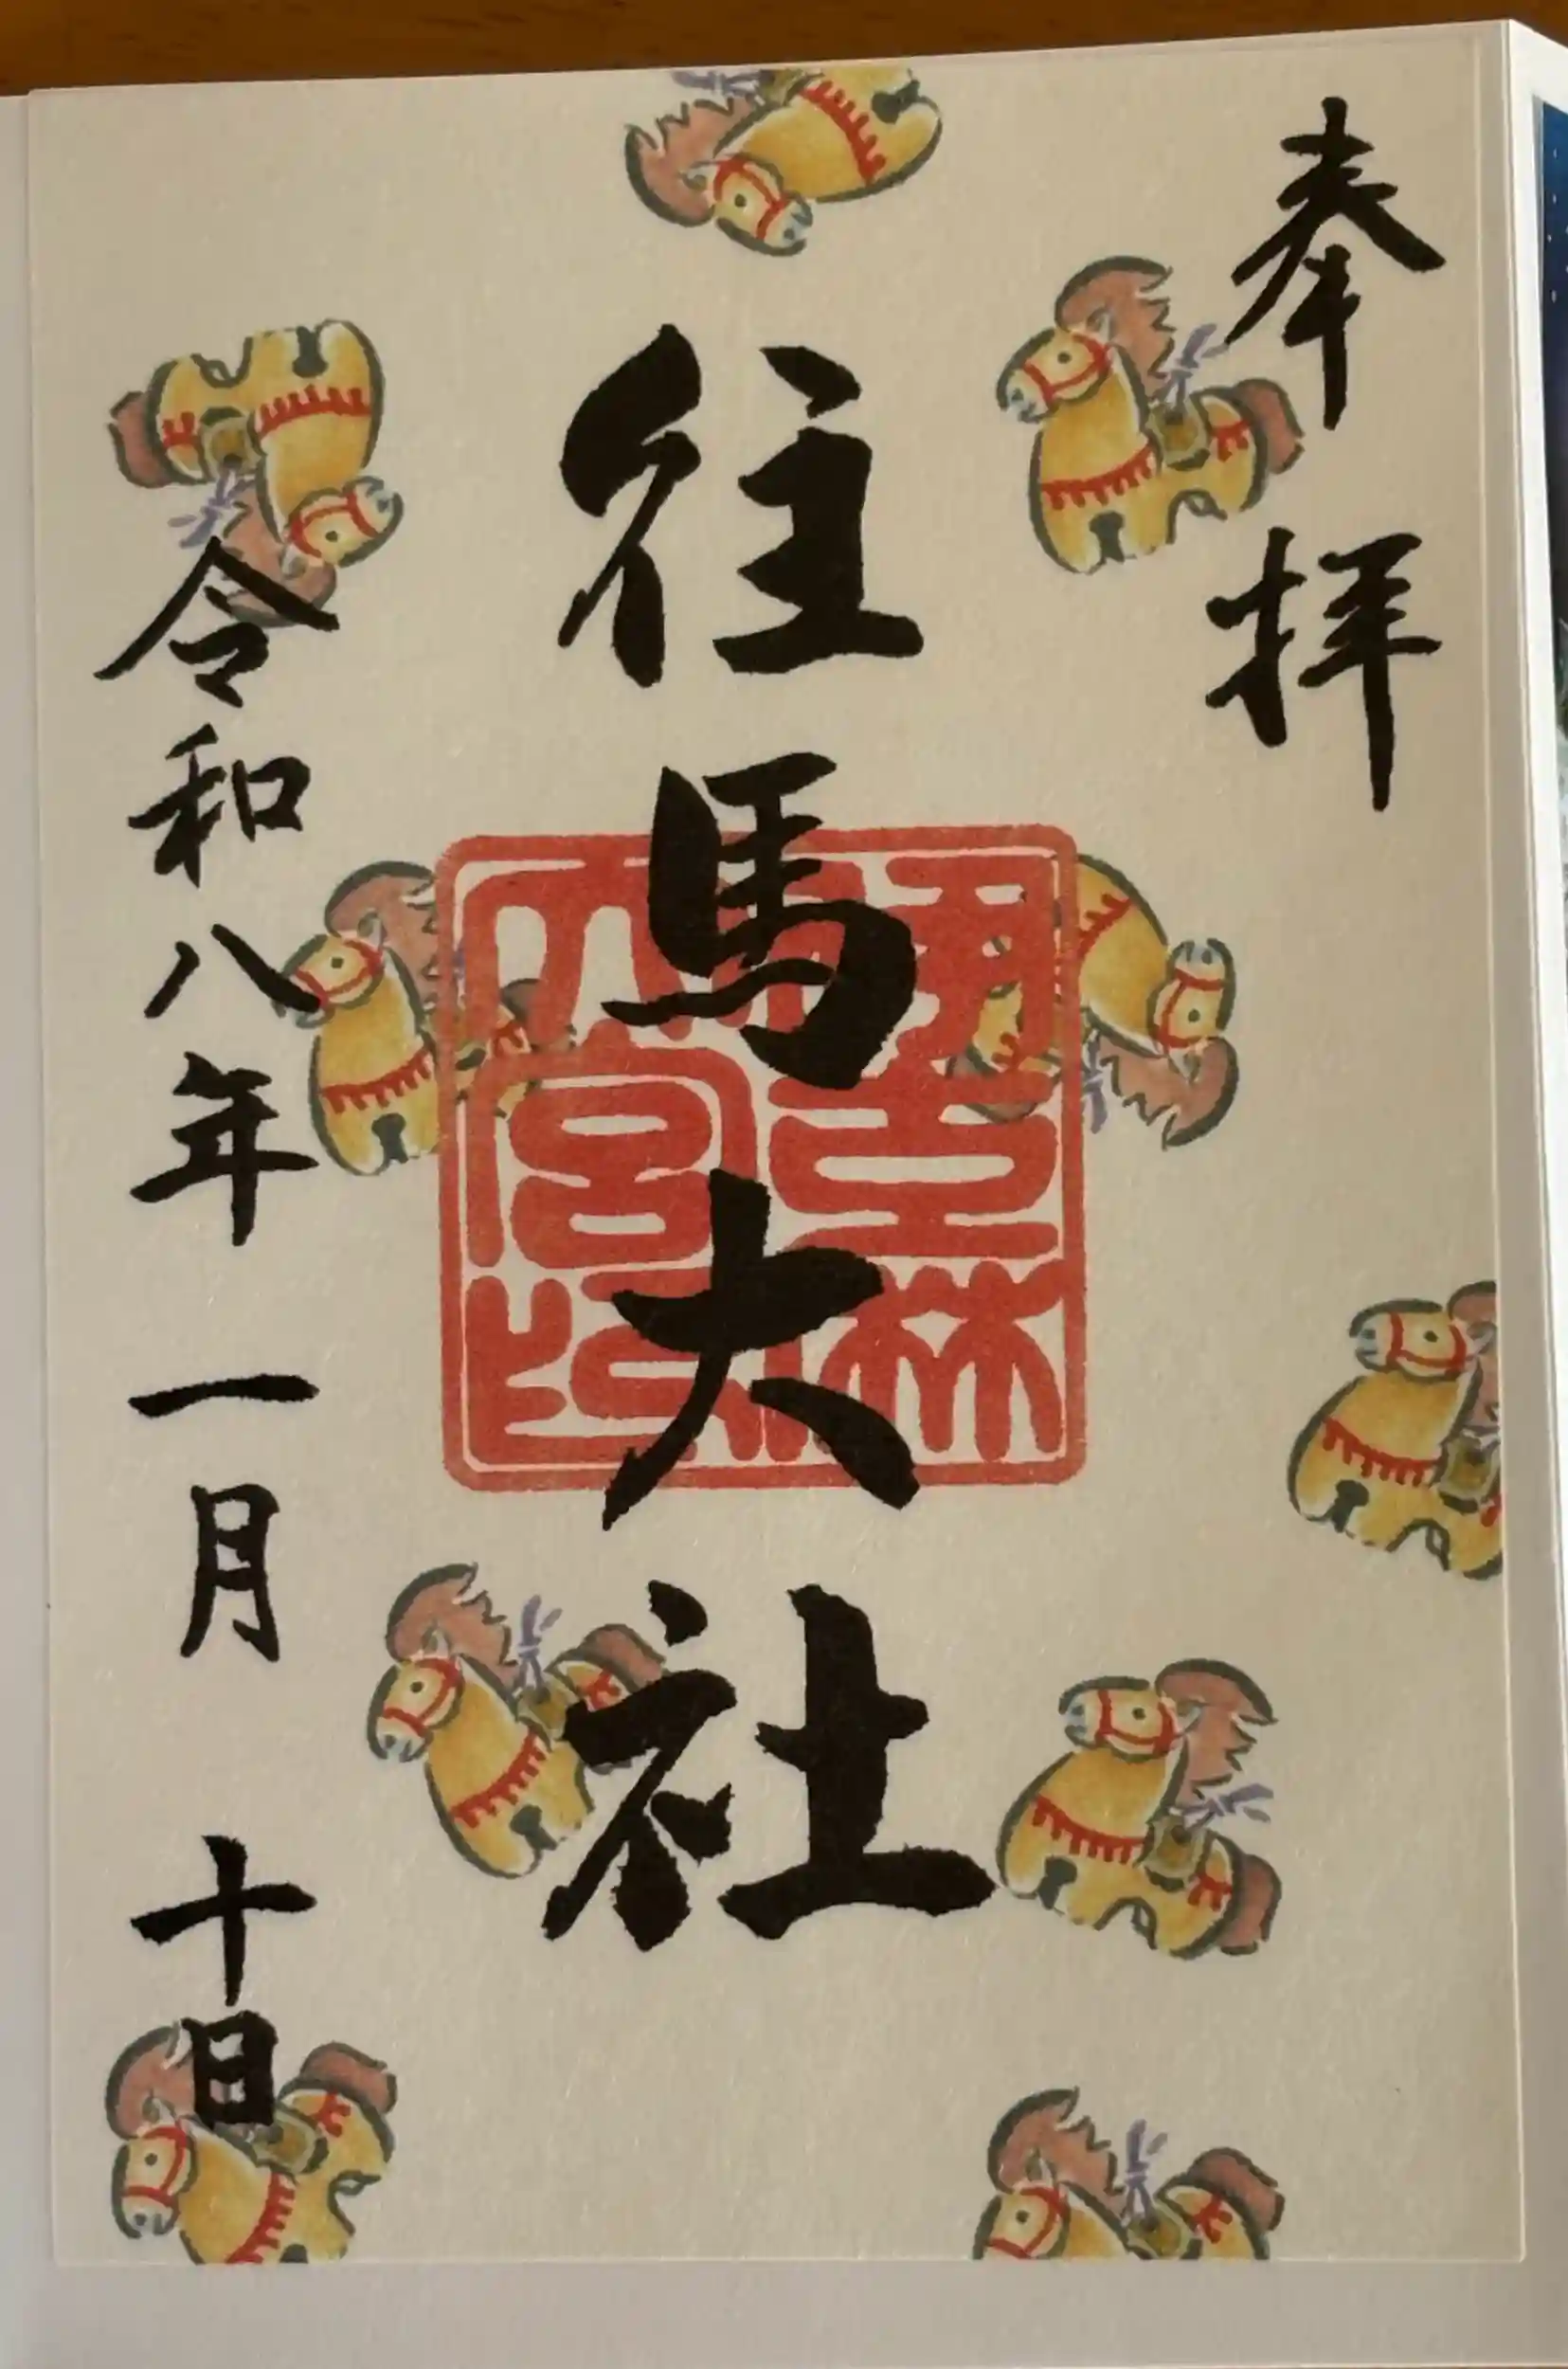 奉拝
往馬大社
令和八年一月十日